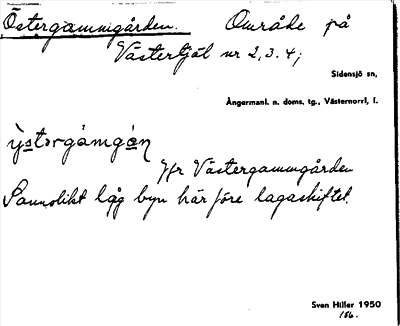 Östergammgården. Område på
Västertjäl nr 2, 3. 4;
Sidensjö sn,
Ångermanl. n. doms. tg., Västernorrl, l.
ỳstərgámgàn
Jfr Västergammgården
Sannolikt låg byn här före lagaskiftet.
Sven Hiller 1950
186.